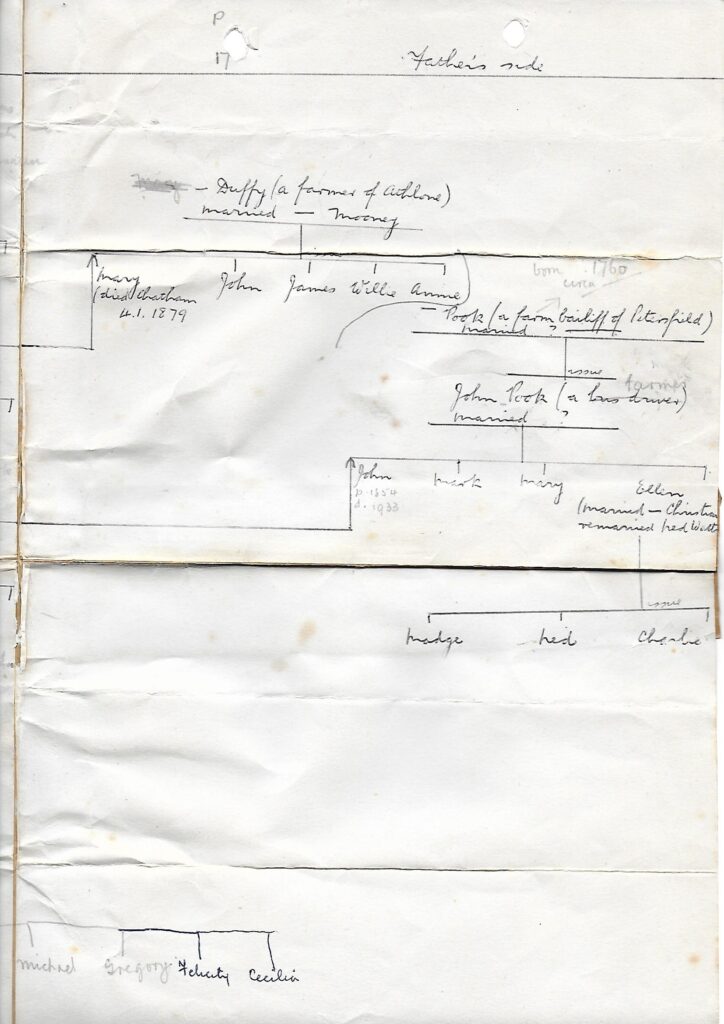 P
17
Father's side
— Duffy (a farmer of Athlone)
married — Mooney
Mary John James Willie Annie
(died Chatham
4.1.1879
born 1760
circa
— Pook (a farm bailiff of Petersfield)
married ?
issue
farmer
John Pook (a bus driver)
married ?
John Mark Mary Ellen
b. 1854
d. 1933
(married — Christian
remarried Ned Watt
issue
Madge Ned Charlie
Michael Gregory Felicity Cecilia